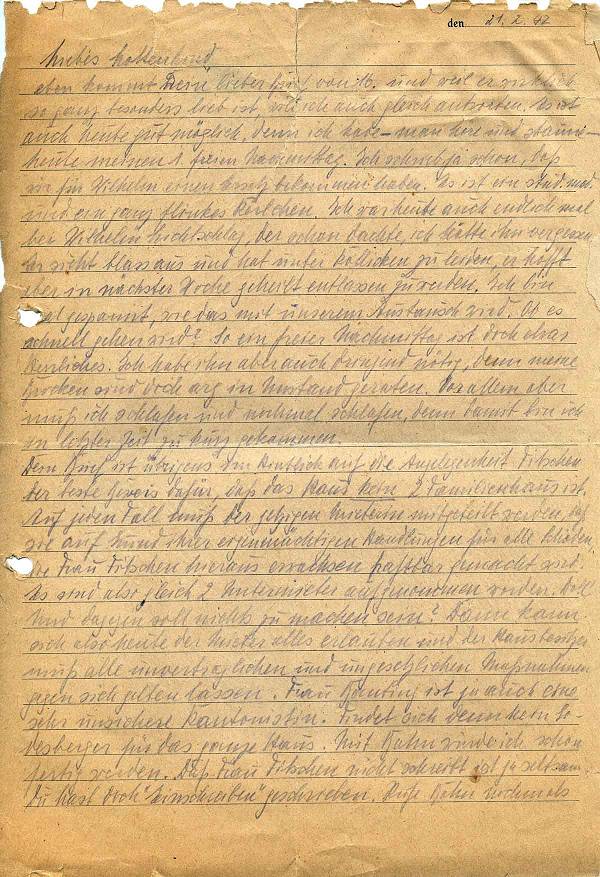 den 21. 2. 42
Liebes
eben kommt Dein lieber Brief von 16. und weil er wirklich
so ganz besonders lieb ist, will ich auch gleich antworten. Es ist
auch heute gut möglich, denn ich habe – man höre und staune –
heute meinen 1. freien Nachmittag. Ich schrieb ja schon, daß
wir für Wilhelm einen Ersatz bekommen haben. Es ist ein stud. med.
und ein ganz flinkes Kerlchen. Ich war heute auch endlich mal
bei Wilhelm, der schon dachte, ich hätte ihn vergessen.
Er sieht blass aus und hat unter Koliken zu leiden, er hofft
aber in nächster Woche geheilt entlassen zu werden. Ich bin
mal gespannt, wie das mit unserem Austausch wird. Ob es
schnell gehen wird? So ein freier Nachmittag ist doch etwas
Herrliches. Ich habe ihn aber auch dringend nötig, denn meine
Socken sind doch arg in Unstand geraten. Vor allem aber
muß ich schlafen und nochmal schlafen, denn damit bin ich
in letzter Zeit zu kurz gekommen.
Dein Brief ist übrigens im Hinblick auf die Angelegenheit
der beste Beweis dafür, daß das Haus kein 2 Familienhaus ist.
Auf jeden Fall muß der jetzigen Mieterin mitgeteilt werden, daß
sie auf Grund ihrer eigenmächtigen Handlungen für alle Schäden,
die Frau hieraus erwachsen haftbar gemacht wird.
Es sind also gleich 2 Untermieter aufgenommen worden. Toll
Und dagegen soll nichts zu machen sein? Dann kann
sich also heute der Mieter alles erlauben und der Hausbesitzer
muß alle unvertraglichen und ungesetzlichen Maßnahmen
gegen sich gelten lassen. Frau ist ja auch eine
sehr unsichere Kantonistin. Findet sich denn kein Go-
desberger für das ganze Haus. Mit Hahn würde ich schon
fertig werden. Daß Frau nicht schreibt ist ja seltsam.
Du hast doch "Einschreiben" geschrieben. Rufe Hahn nochmals